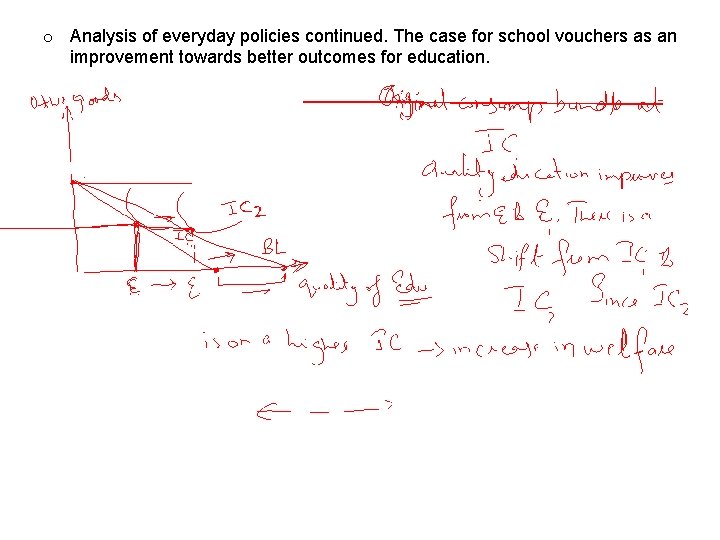 o Analysis of everyday policies continued. The case for school vouchers as an
improvement towards better outcomes for education.
Other goods
Original consump bundle at
IC
Quality education improves
from E to E. There is a
Shift from IC to
IC2 Since IC2
is on a higher IC → increase in welfare
IC2
IC
BL
E → E
1
Quality of Edu